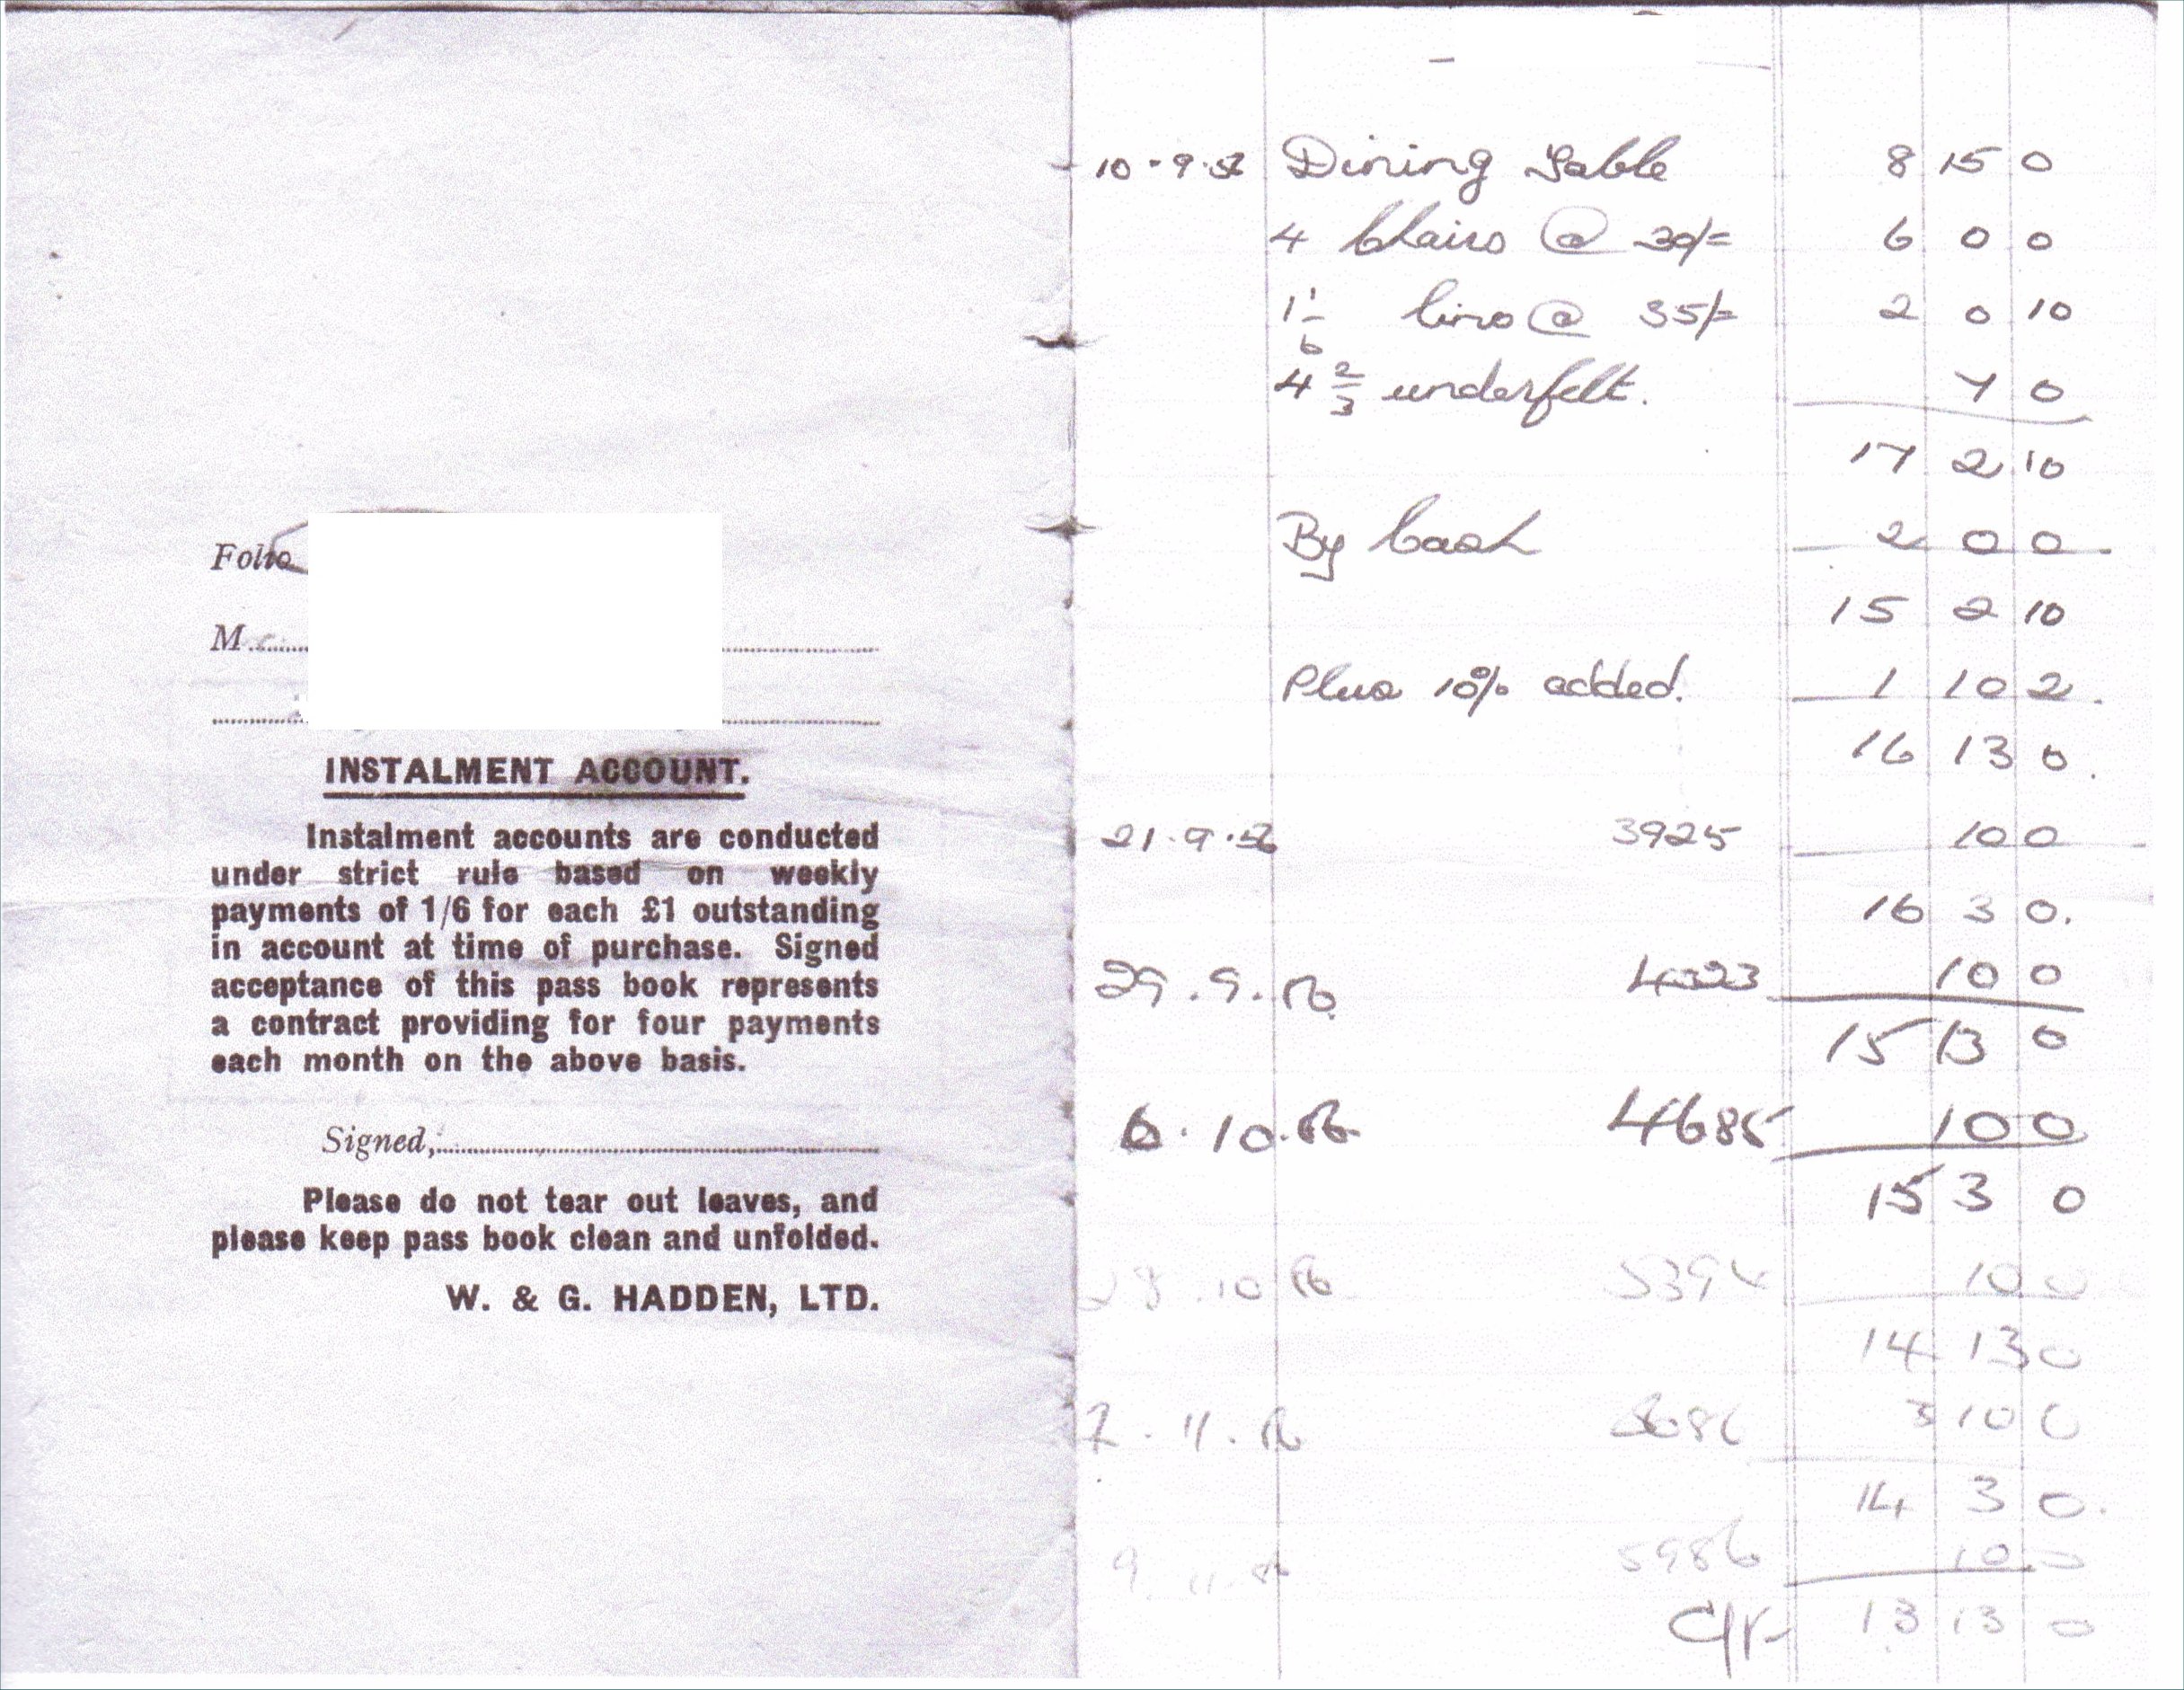 Folio
M
INSTALMENT ACCOUNT.
Instalment accounts are conducted
under strict rule based on weekly
payments of 1/6 for each £1 outstanding
in account at time of purchase. Signed
acceptance of this pass book represents
a contract providing for four payments
each month on the above basis.
Signed,
Please do not tear out leaves, and
please keep pass book clean and unfolded.
W. & G. HADDEN, LTD.
10.9.56 Dining Table 8 15 0
4 Chairs @ 30/= 6 0 0
1 1/6 Lino @ 35/= 2 0 10
4 2/3 underfelt. 7 0
17 2 10
By Cash 2 0 0
15 2 10
Plus 10% added. 1 10 2
16 13 0
21.9.56 3925 10 0
16 3 0.
29.9.56 4323 10 0
15 13 0
6.10.56 4685 10 0
15 3 0
10 56 5394 10 0
14 13 0
11.56 10 0
14 3 0
9.11.56 5986 10 0
13 13 0